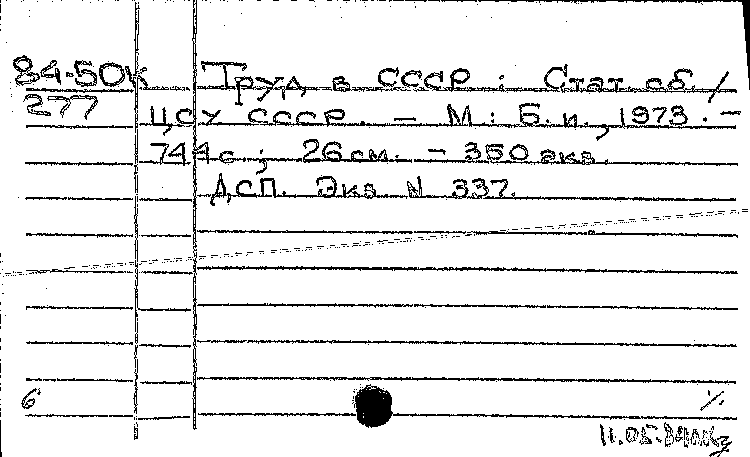 84-50К Труд в СССР : Стат. сб. /
277 ЦСУ СССР. — М. : Б. и., 1973. —
744 с ; 26 см. — 350 экз.
ДСП. Экз N 337.
6
11.05.84